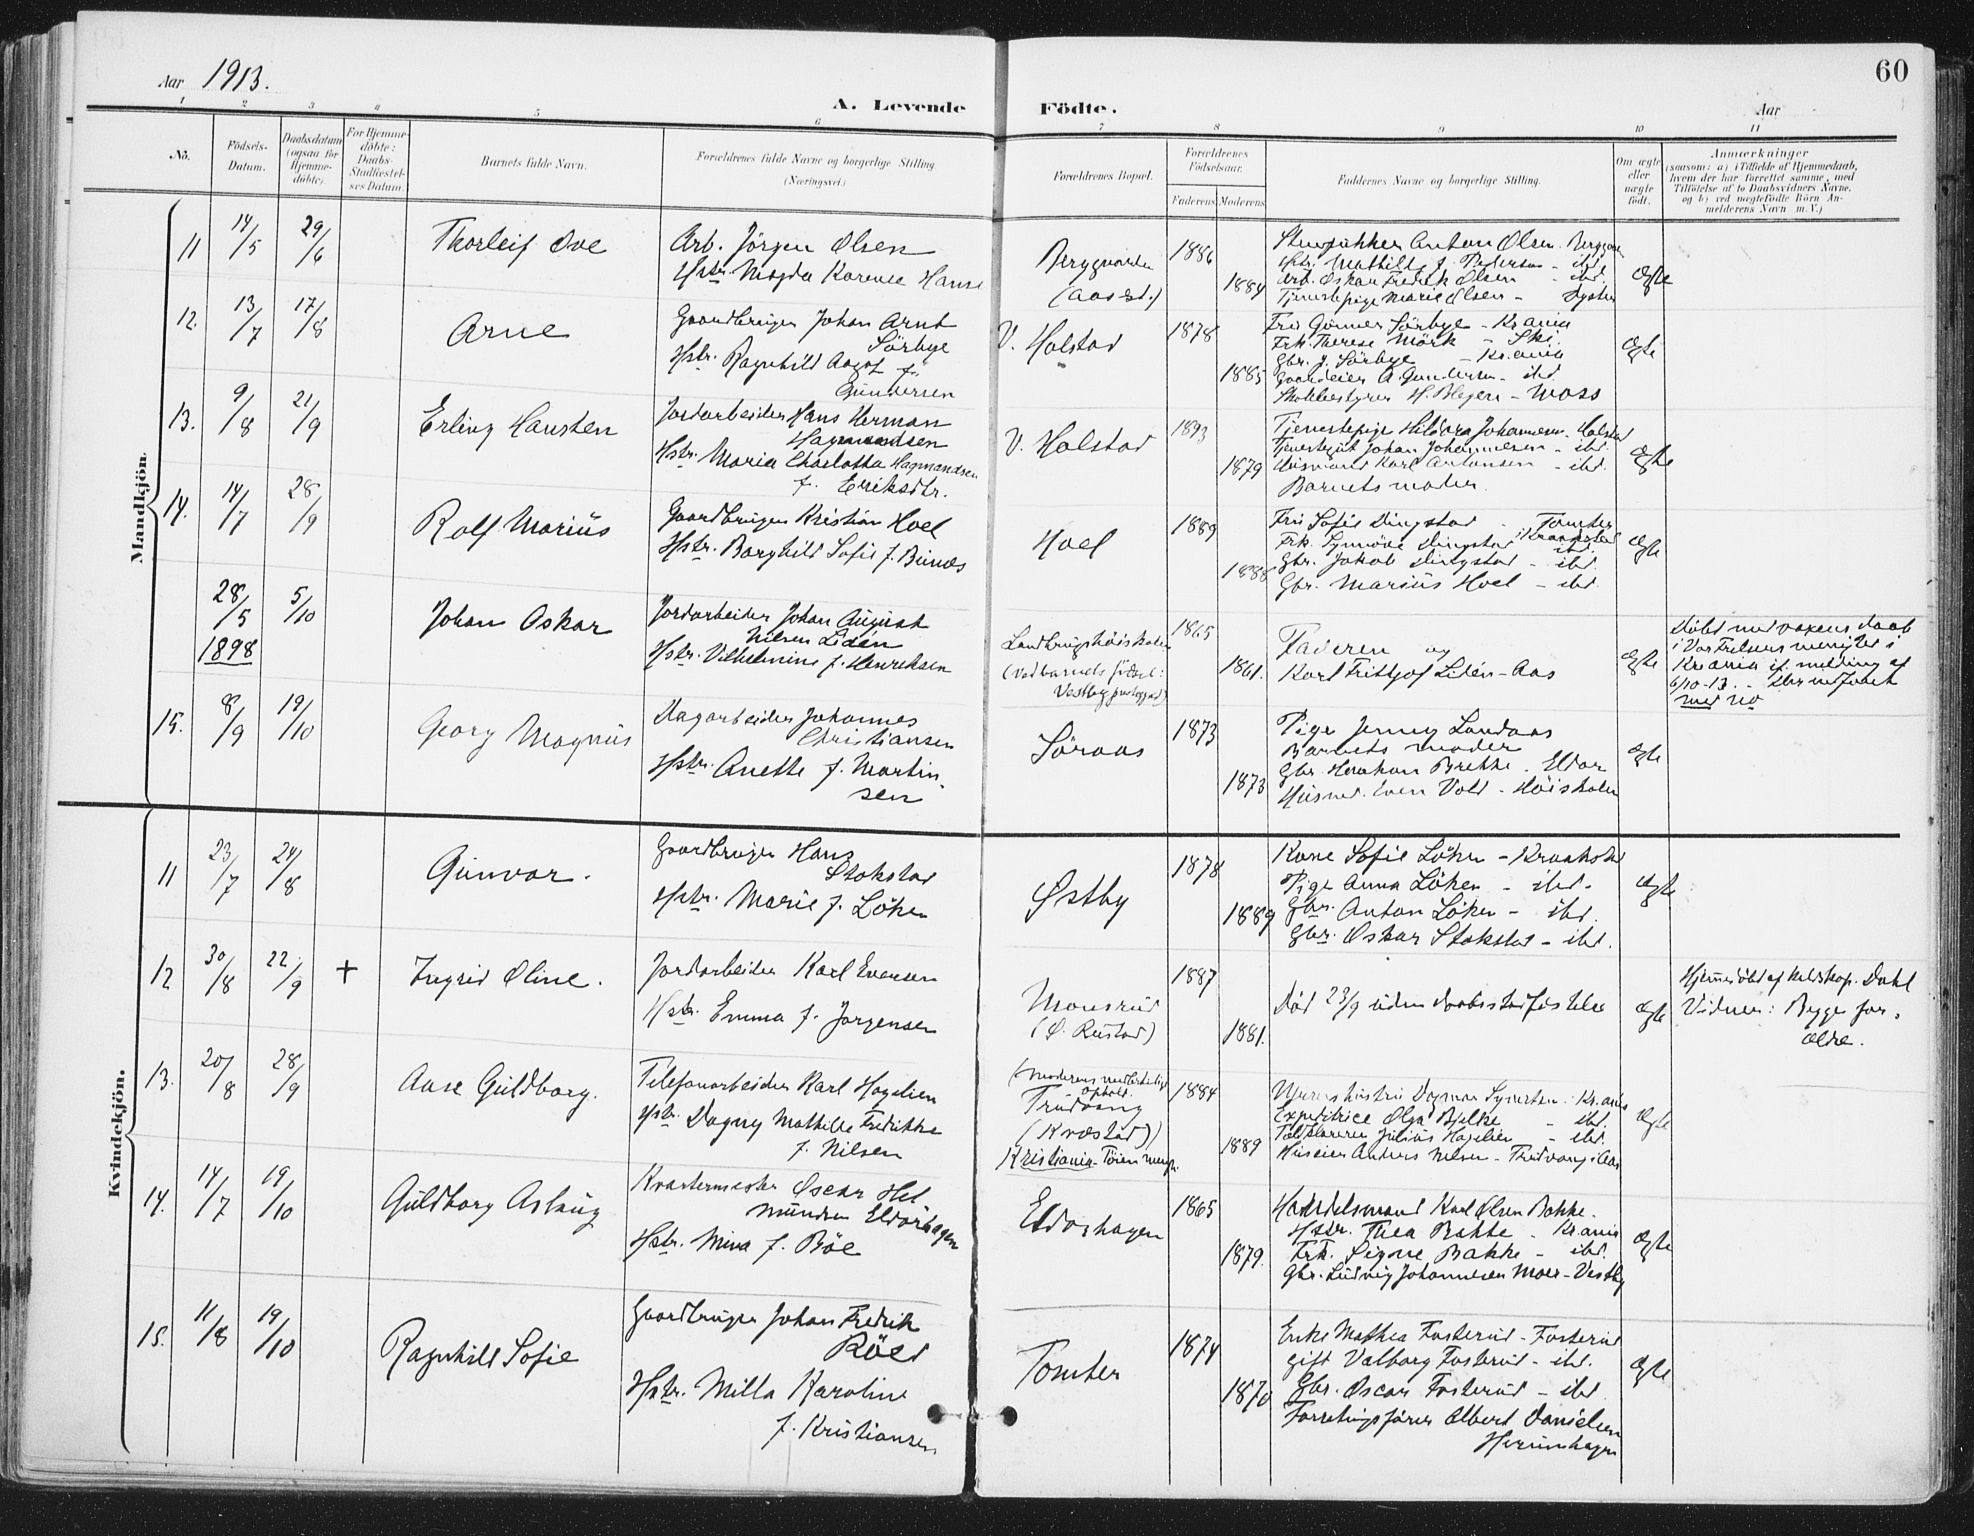 Aar 1913.
A. Levende Födte.
Aar
60
1 2 3 4 5 6 7 8 9 10 11
No.
Födsels-Datum.
Daabsdatum (ogsaa for Hjemme-döbte).
For Hjemme-döbte: Daabs-Stadfæstel-ses Datum.
Barnets fulde Navn.
Forældrenes fulde Navne og borgerlige Stilling
(Næringsvei.)
Forældrenes Bopæl.
Forældrenes Födselsaar.
Faderens Moderens
Faddernes Navne og borgerlige Stilling.
Om ægte eller uægte födt.
Anmærkninger
(saasom: a) i Tilfælde af Hjemmedaab,
hvem der har forrettet samme, med
Tilföielse af to Daabsvidners Navne,
og b) ved uægtefödte Börn An-
melderens Navn m. V.)
Mandkjön.
11 14/5 29/6 Thorleif Ove
Arb. Jörgen Olsen
Hstr. Magda Karense Hansen
(Aas st.)
1886 1884
Arb. Oskar Fredrik Olsen - ibd.
Tjenestepige Marie Olsen -
ægte
12. 13/7 17/8 Arne
Gaardbruger Johan Arnt
Sörbye
Hstr. Ragnhild Aagot f.
Gundersen
V. Holstad
1878 1885
Fru Gönner Sörbye - Kr.ania
Frk. Therese Mörk - Ski
Gbr. J. Sörbye - Kr.ania
Gaardeier A. Gundersen - ibd.
- Moss
ægte
13. 9/8 21/9 Erling Hansten
Jordarbeider Hans Herman
Hagmandsen
Hstr. Maria Charlotta Hagmandsen
f. Eriksdtr.
V. Holstad
1893 1879
Tjenestepige Hildora Johannesen - Holstad
Tjenestegut Johan Johannesen - ibd.
Husmand Karl Antonsen - ibd.
Barnets moder.
ægte
14. 14/7 28/9 Rolf Marius
Gaardbruger Kristian Hoel
Hstr. Borghild Sofie f. Bunæs
Hoel
1889 1888
Fru Sofie Dingstad - Tomter
i Kraakstad
Frk. Synnöve Dingstad ibd.
Gbr. Jakob Dingstad - ibd.
Gbr. Marius Hoel - ibd.
ægte
28/5 1898 5/10 Johan Oskar
Jordarbeider Johan August
Nilsen Lidén
Hstr. Vilhelmine f. Henriksen
Landbrugshöiskolen
(Ved barnets födsel:
Vestby prestegjeld)
1865 1861.
Faderen og
Karl Fritjof Lidén - Aas
ægte
Döbt med voxens daab
i Vor Frelsers menighet i
Kr.ania if. melding af
6/10-13.
15. 8/9 19/10 Georg Magnus
Dagarbeider Johannes
Christiansen
Hstr. Anette f. Martin-
sen
Söraas
1873 1873
Pige Jenny Landaas
Barnets moder
Gbr. Haakon Brekke - Eldor
Husmd. Even Vold - Höiskolen
ægte
Kvindekjön.
11 23/7 24/8 Gunvor.
Gaardbruger Hans
Stokstad
Hstr. Marie f. Löken
Østby
1878 1889
Kone Sofie Löken - Kraakstad
Pige Anna Löken - ibd.
Gbr. Anton Löken - ibd.
Gbr. Oskar Stokstad - ibd.
ægte
12 30/8 22/9 + Ingrid Oline.
Jordarbeider Karl Evensen
Hstr. Emma f. Jörgensen
Monsrud
(Ö. Rustad)
1887 1881.
Död 23/9 uden daabsstadfæstelse
ægte
Hjemmedöbt af Kirkesk. Dahl
Vidner: Begge for-
ældre.
13. 20/8 28/9 Aase Guldborg.
Telefonarbeider Karl Hagelien
Hstr. Dagny Mathilde Fredrikke
f. Nilsen
(Moderens midlertidige
ophold.
Trudvang
(Kvæstad))
Kristiania - Töien menigh.
1884 1889
Dagmar Syvertsen - Kr.ania
Expeditrice Olga Bjelke - ibd.
Julius Hagelien - ibd.
Huseier Anders Nilsen - Trudvang i Aas
ægte
14. 14/7 19/10 Guldborg Aslaug
Kvartermester Oscar Hel
munden Eldorhagen
Hstr. Mina f. Böe
Eldorhagen
1865 1879.
Handelsmand Karl Olsen Bakke.
Hstr. Thea Bakke - Kr.ania
Frk. Signe Bakke - ibd.
Gbr. Ludvig Johannesen Moer - Vestby
ægte
15. 11/8 19/10 Ragnhild Sofie
Gaardbruger Johan Fredrik
Röed
Hstr. Milla Karoline
f. Kristiansen
Tomter
1874 1870
Enke Mathea Fosterud - Fosterud
gift Valborg Fosterud - ibd.
Gbr. Oscar Fosterud - ibd.
Forretningsförer Albert Danielsen
ægte